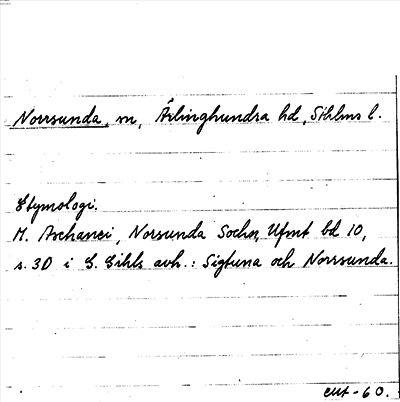 Norrsunda, sn, Ärlinghundra hd, Sthlms l.
Etymologi.
M. Aschanei, Norsunda Sochn, Ufmt bd 10,
s. 30 i G. Gihls avh.: Sigtuna och Norrsunda.
-60.